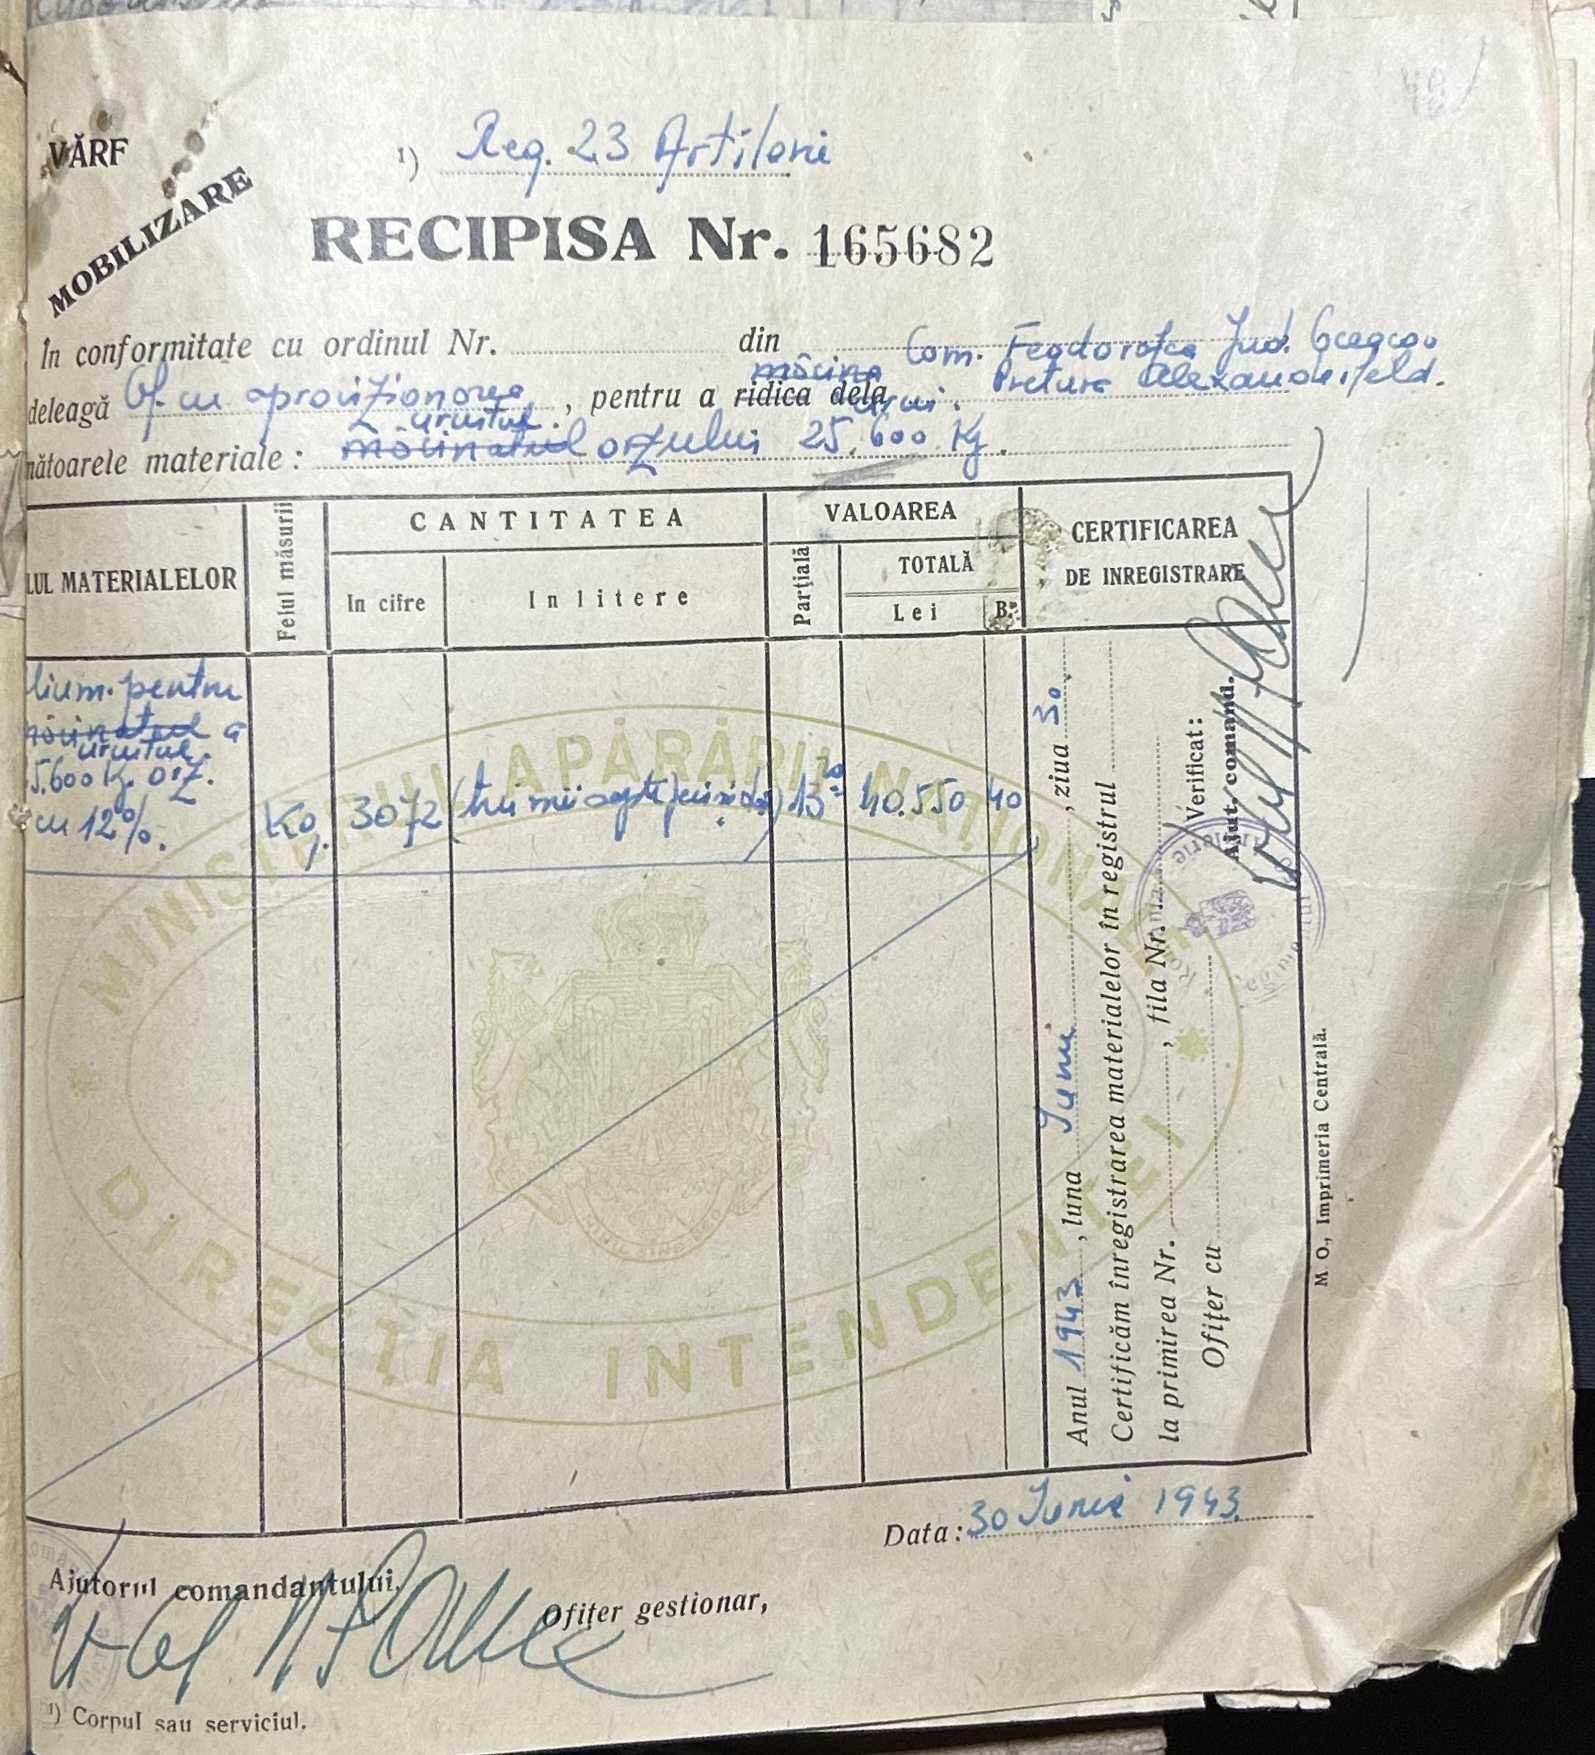 VĂRF
MOBILIZARE
¹) Reg. 23 Artilerie
RECIPISA Nr. 165682
În conformitate cu ordinul Nr. din Com. Feodorofca Jud.
deleagă Of. cu aprovizionarea, pentru a ridica dela măcina urui. Pretura Alexanderfeld.
nătoarele materiale: măcinatul uruitul orzului 25.600 Kg.
LUL MATERIALELOR
Felul măsurii
CANTITATEA
In cifre
In litere
VALOAREA
Parțială
TOTALĂ
Lei
B.
CERTIFICAREA
DE INREGISTRARE
Uium. pentru
măcinatul a
uruitul.
5.600 Kg. orz.
cu 12%.
Kg. 3072 (trei mii șapte 13 20 40.550 40
Anul 1943, luna Iunie, ziua 30.
Certificăm înregistrarea materialelor în registrul
la primirea Nr. , fila Nr.
Ofițer cu
Verificat:
Ajut. comand.
MINISTERUL APĂRĂRII NAȚIONALE
DIRECȚIA INTENDENȚEI
NIHIL SINE DEO
M. O., Imprimeria Centrală.
Data: 30 Iunie 1943.
Ajutorul comandantului,
Ofițer gestionar,
¹) Corpul sau serviciul.